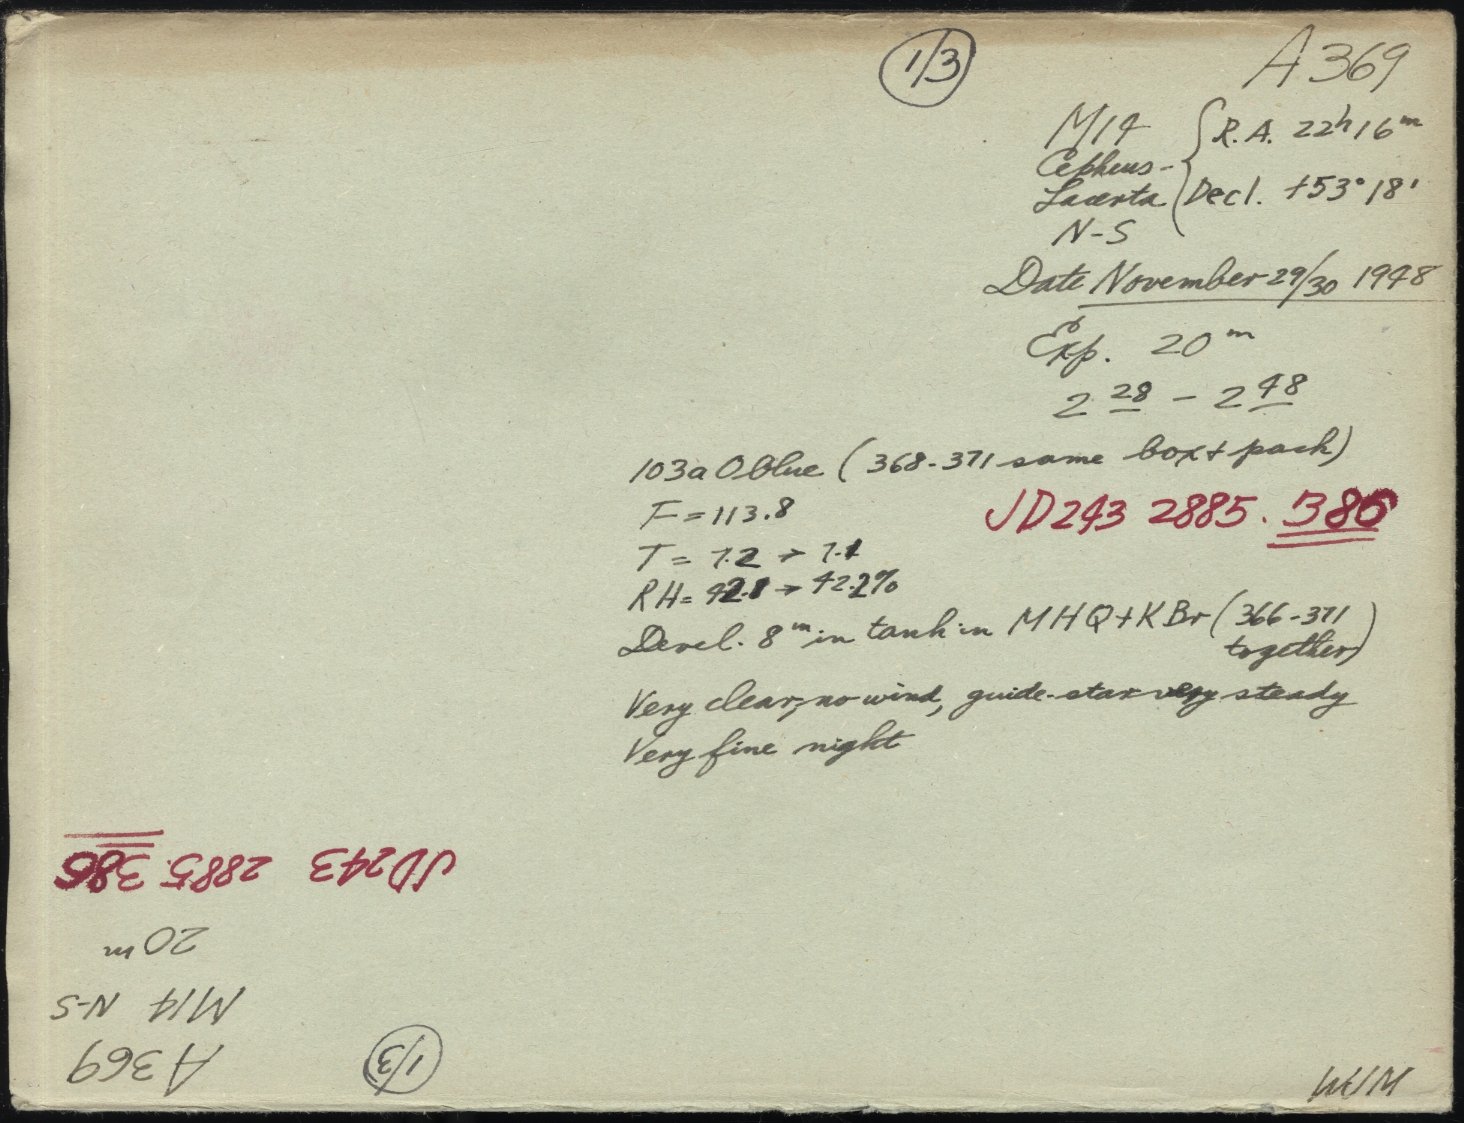 1/3
A 369
M14 { R.A. 22h 16m
Cepheus-
Lacerta Decl. +53° 18'
N-S
Date November 29/30 1948
Exp. 20m
2 28 - 2 48
103a O blue (368-371 same box + pack)
F = 113.8
JD 243 2885.386
T = 7.2 → 7.1
RH = 42.1 → 42.2%
Devel. 8m in tank in MHQ + KBr (366-371
together)
Very clear, no wind, guide-star very steady
Very fine night
JD 243 2885.386
20m
M14 N-S
A 369
1/3